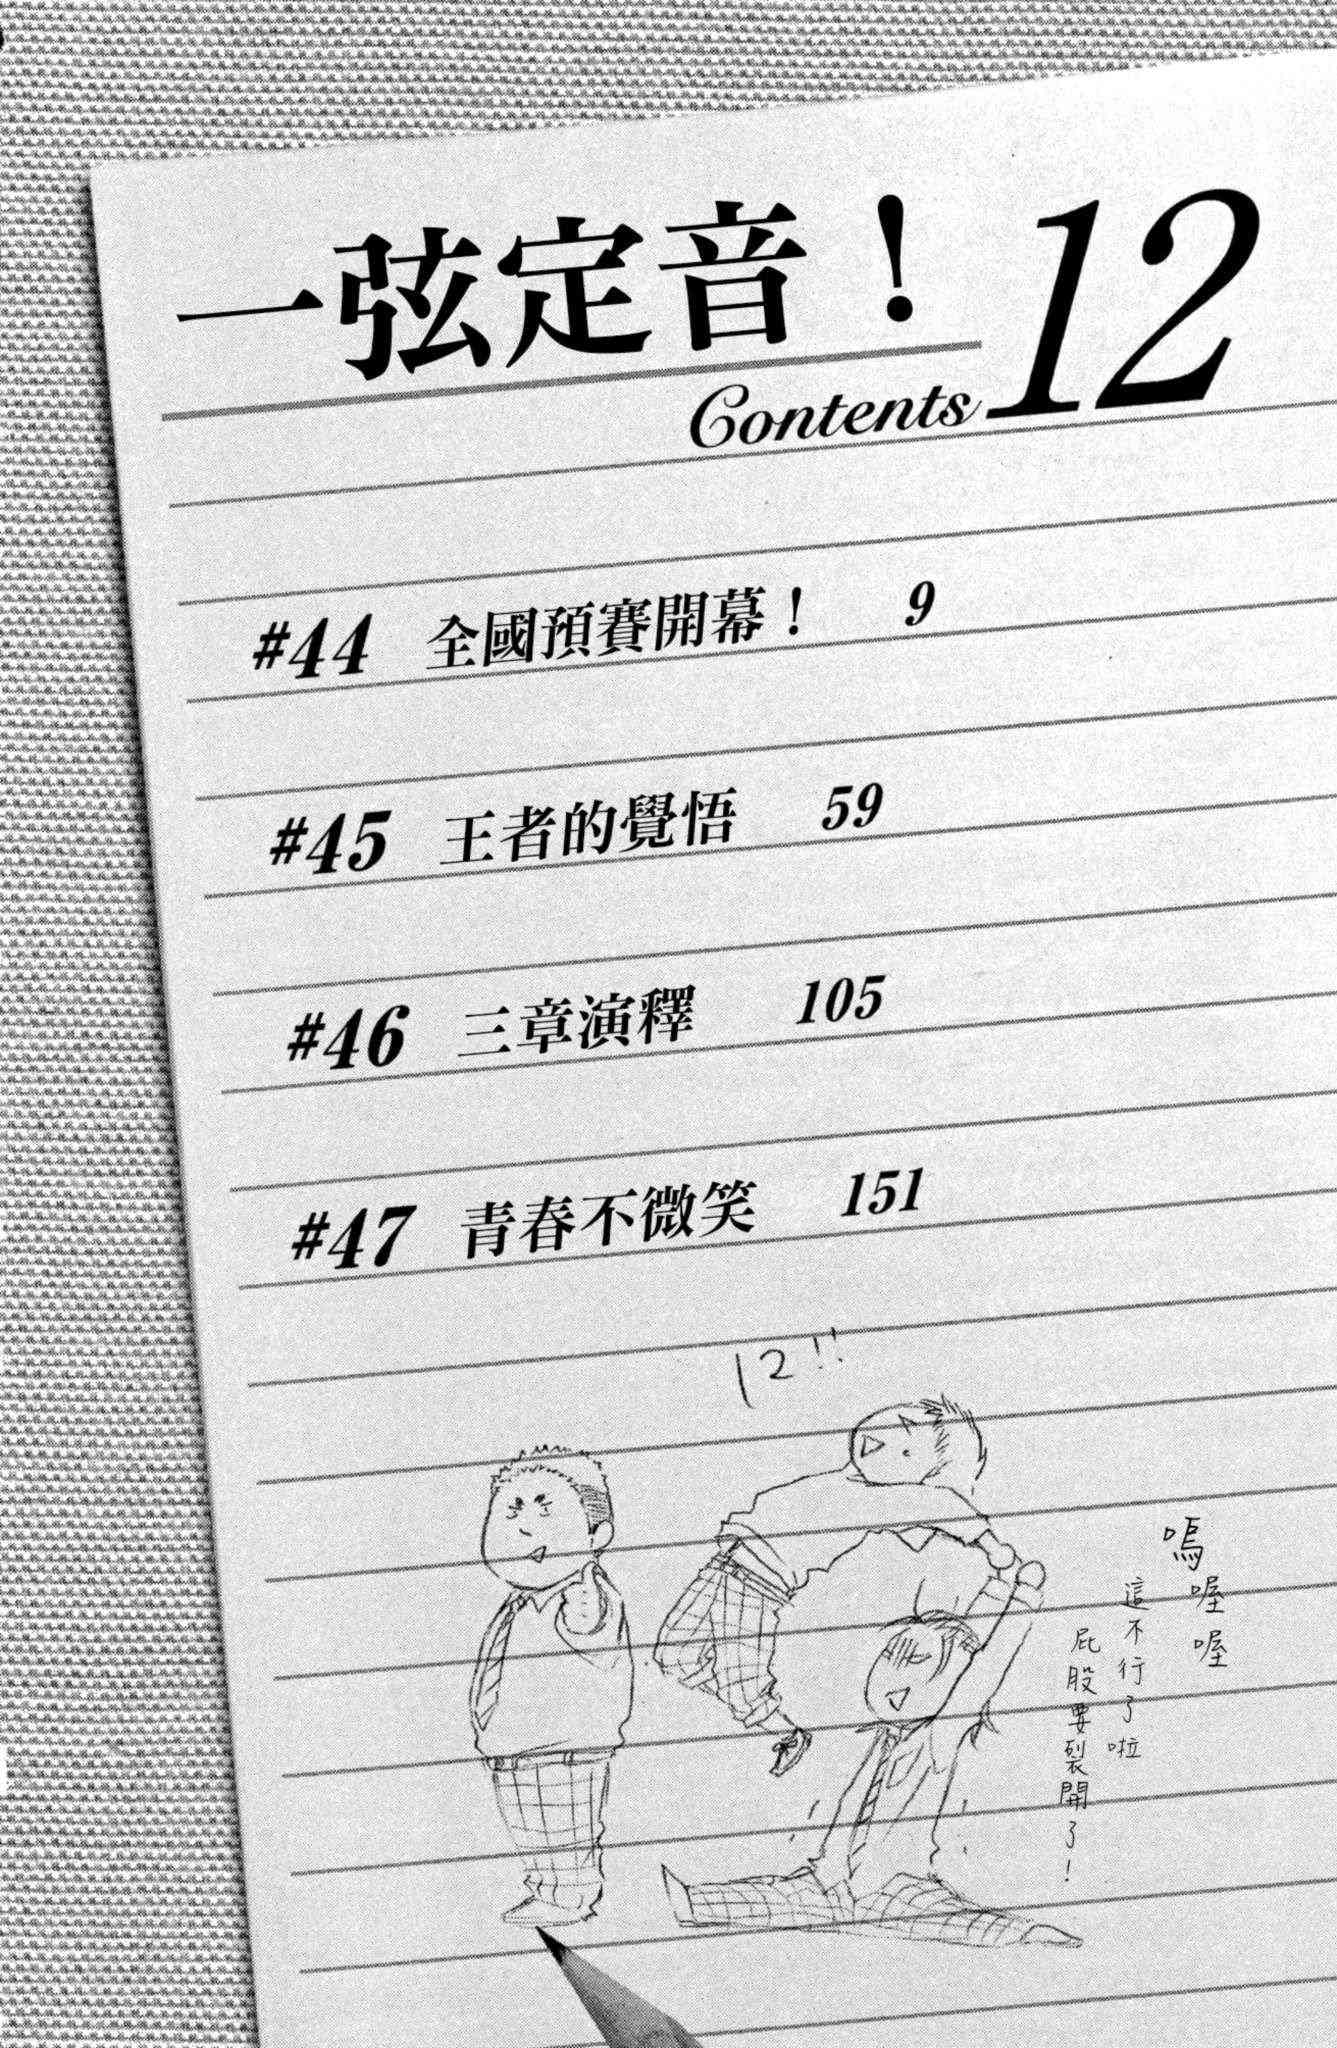 一弦定音！12
Contents
#44 全國預賽開幕！ 9
#45 王者的覺悟 59
#46 三章演釋 105
#47 青春不微笑 151
12!!
嗚喔喔
這不行了啦
屁股要裂開了！